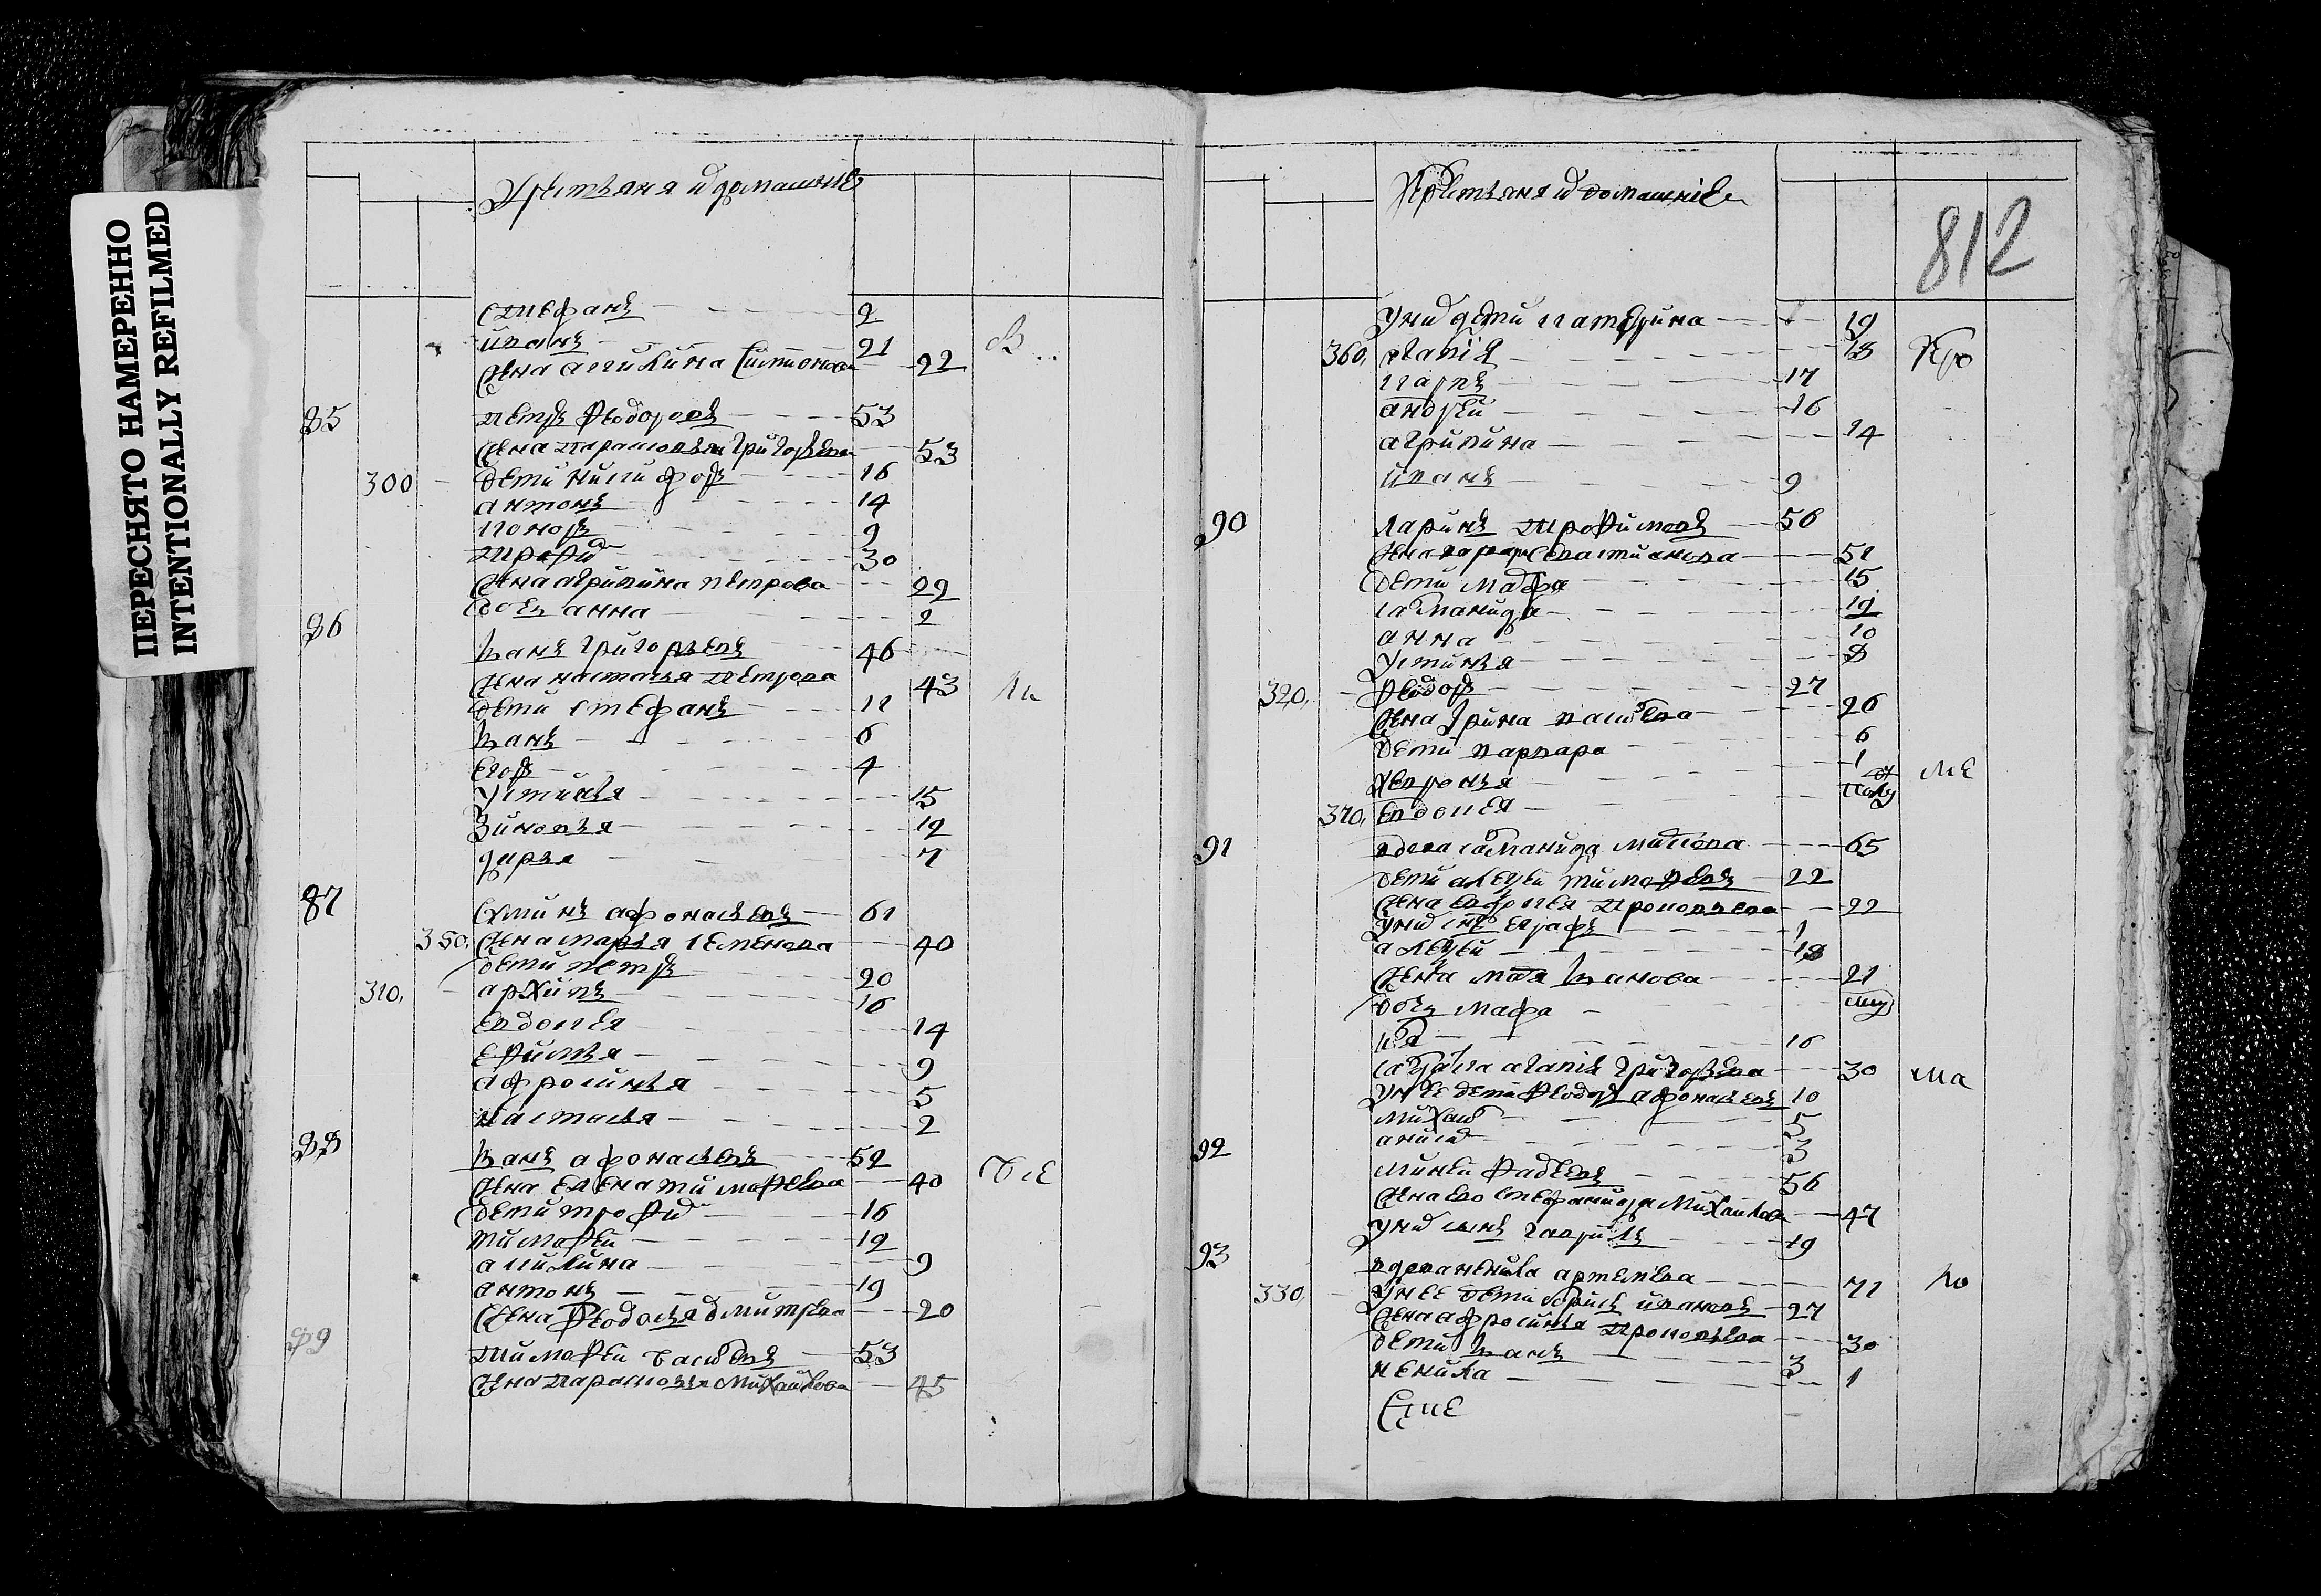 ПЕРЕСНЯТО НАМЕРЕННО
INTENTIONALLY REFILMED
Крестьяня и домашние
стефанъ 9
иванъ 21
жена акилина 22
85 петръ Феодоровъ 53
жена парасковья григорьева 53
300 дети никифоръ 16
антонъ 14
кононъ 9
трофи 30
жена агрипина петрова 29
дочь анна 2
86 Иванъ григорьевъ 46
жена настасья петрова 43
дети стефанъ 12
Иванъ 6
Егоръ 4
Устинья 15
Зиновья 12
дарья 7
87 афонасьевъ 61
350 жена марья семенова 40
дети петръ 20
310 архипъ 16
Евдокея 14
Ефимья 9
афросинья 5
настасья 2
88 Иванъ афонасьевъ 52
жена елена тимофеева 40
дети трофи 16
тимофеи 12
акилина 9
антонъ 19
жена Феодосья дмитрева 20
89 тимофеи васильевъ 53
жена парасковья михаилова 45
Крестьяня и домашние
812
у них дети катерина 19
360 агапия 18
карпъ 17
андреи 16
агрипина 14
иванъ 9
90 ларинъ трофимовъ 56
жена севастианова 51
дети марфа 15
саломанида 12
анна 10
Устинья 8
320 Феодоръ 27
жена Ирина василева 26
дети варвара 6
хевронья 1
370 Евдокея
91 вдова саломанида 65
дети алексеи тимофеевъ 22
жена прокопьева 22
у них сынъ 1
алексеи 18
жена Иванова 21
дочь марфа
16
агапия григорьева 30
у нее дети Феодоръ афонасьевъ 10
михаил 5
3
92 минеи Фадеевъ 56
жена ево стефанида михаилова 47
у них сынъ гаврилъ 19
93 вдова ненила артемева 71
330 у нее дети борисъ ивановъ 27
жена афросинья прокопьева 30
дети Иванъ 3
ненила 1
Еще